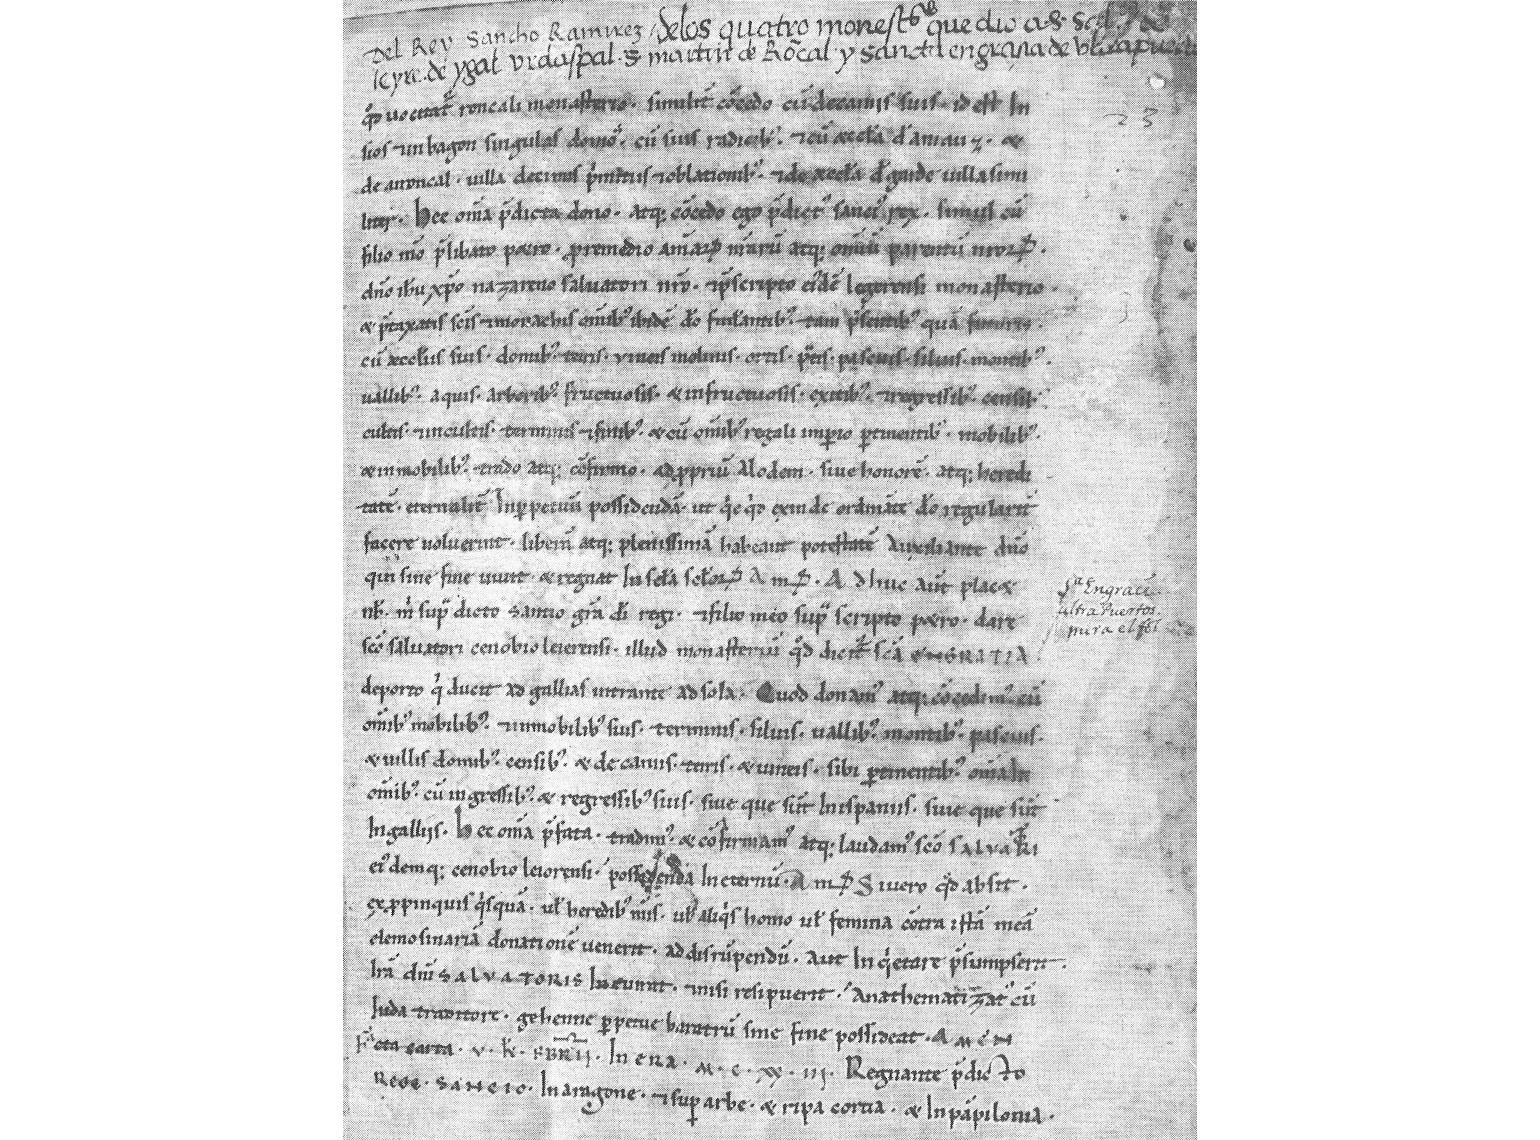 Del Rey Sancho Ramirez / de los quatro monest.os que dio a S. Sal.
leyre. de ygal vrdaspal. S. martin de Rōcal y Sancta engraçia de
q̄d uocitat̄ roncali monasterio. similit̄ cōcedo cū decaniis suis. id est In
sios ⁊ in bagon singulas domo᷒. cū suis radicib᷒. ⁊ cū æccl̄a
de auroncal. uilla decimis p̄mitiis ⁊ oblationib᷒. ⁊ de æccl̄a uilla simi
liter. hec om̄ia p̄dicta dono. atq; cōcedo ego p̄dict᷒ sanci᷒ rex. simul cū
filio m̄o p̄libato petro. p remedio animaꝝ n̄raru atq; omniū parentū n̄roꝝ.
dn̄o ih̄u xp̄o nazareno saluatori n̄ro. ⁊ p̄scripto eidē legerensi monasterio
& p̄taxatis sc̄is ⁊ monachis om̄ib᷒ ibidē d̄o famlantib᷒. tam p̄sentib᷒ quā futuris.
cū æccl̄iis suis. domib᷒. terris. vineis molinis. ortis. p̄tis. pascuis. siluis. montib᷒.
uallib᷒. aquis. arborib᷒. fructuosis. & infructuosis. exitib᷒. ⁊ regressib᷒. censib᷒
cultis. ⁊ incultis. terminis ⁊ finib᷒. & cū om̄ib᷒ regali imperio ptinentib᷒. mobilib᷒.
& inmobilib᷒. trado atq; cōfirmo. ad ppriū alodem. siue honorē. atq; heredi
tatē. eternalit̄ In ppetuū possidendā. ut q̄cq̄d exinde ordinate d̄o regularit̄
facere uoluerint. liberā atq; plenissimā habeant potestatē Auxiliante dn̄o
qui sine fine uiuit. & regnat In sc̄la sc̄loꝝ Amꝝ. Adhuc aut̄ placet
m̄ sup̄ dicto sancio gr̄a d̄i regi. ⁊ filio meo sup̄ scripto petro. dare
sc̄o saluatori cenobio leiorensi. illud monasteriū q̄d dicit̄ sc̄a ENGRATIA.
de porto q̄ ducit ad gallias intrante ad sola. Quod donam᷒ atq; cōcedim᷒ cū
om̄ib᷒ mobilib᷒. ⁊ inmobilib᷒ suis. terminis. siluis. uallib᷒. montib᷒. pascuis.
& uillis domib᷒. censib᷒. & decanis. terris. & uineis. sibi ptinentib᷒. om̄ia In
om̄ib᷒. cū ingressib᷒. & regressib᷒ suis. siue que sūt In ispaniis. siue que sūt
In gallijs. hec om̄a p̄fata. tradim᷒. & cōfirmam᷒ atq; laudam᷒ sc̄o SALVATORI
ei᷒demq; cenobio leiorensi. possidenda In eternū. Amꝝ Si uero q̄d absit.
ex ppinquis q̄squā. ul̄ heredib᷒ m̄is. ul̄ aliq̄s homo ul̄ femina cōtra istā meā
elemosinariā donationē uenerit. ad disrūpendū. Aut Inq̄etare p̄sumpserit.
Irā dn̄i SALVATORIS Incurrat. ⁊ nisi resipuerit. Anathematizat᷒ cū
Iuda traditore. gehenne ppetue baratrū sine fine possideat. AMEN
Facta carta. v. k̄. FBRII. In ERA. M. C. XX. III. Regnante p̄dicto
REGE. SANCIO. In aragone. ⁊ sup arbe. & ripa corcia. & In pāpilonia.
23
S.ta Engracia
ultra Puertos.